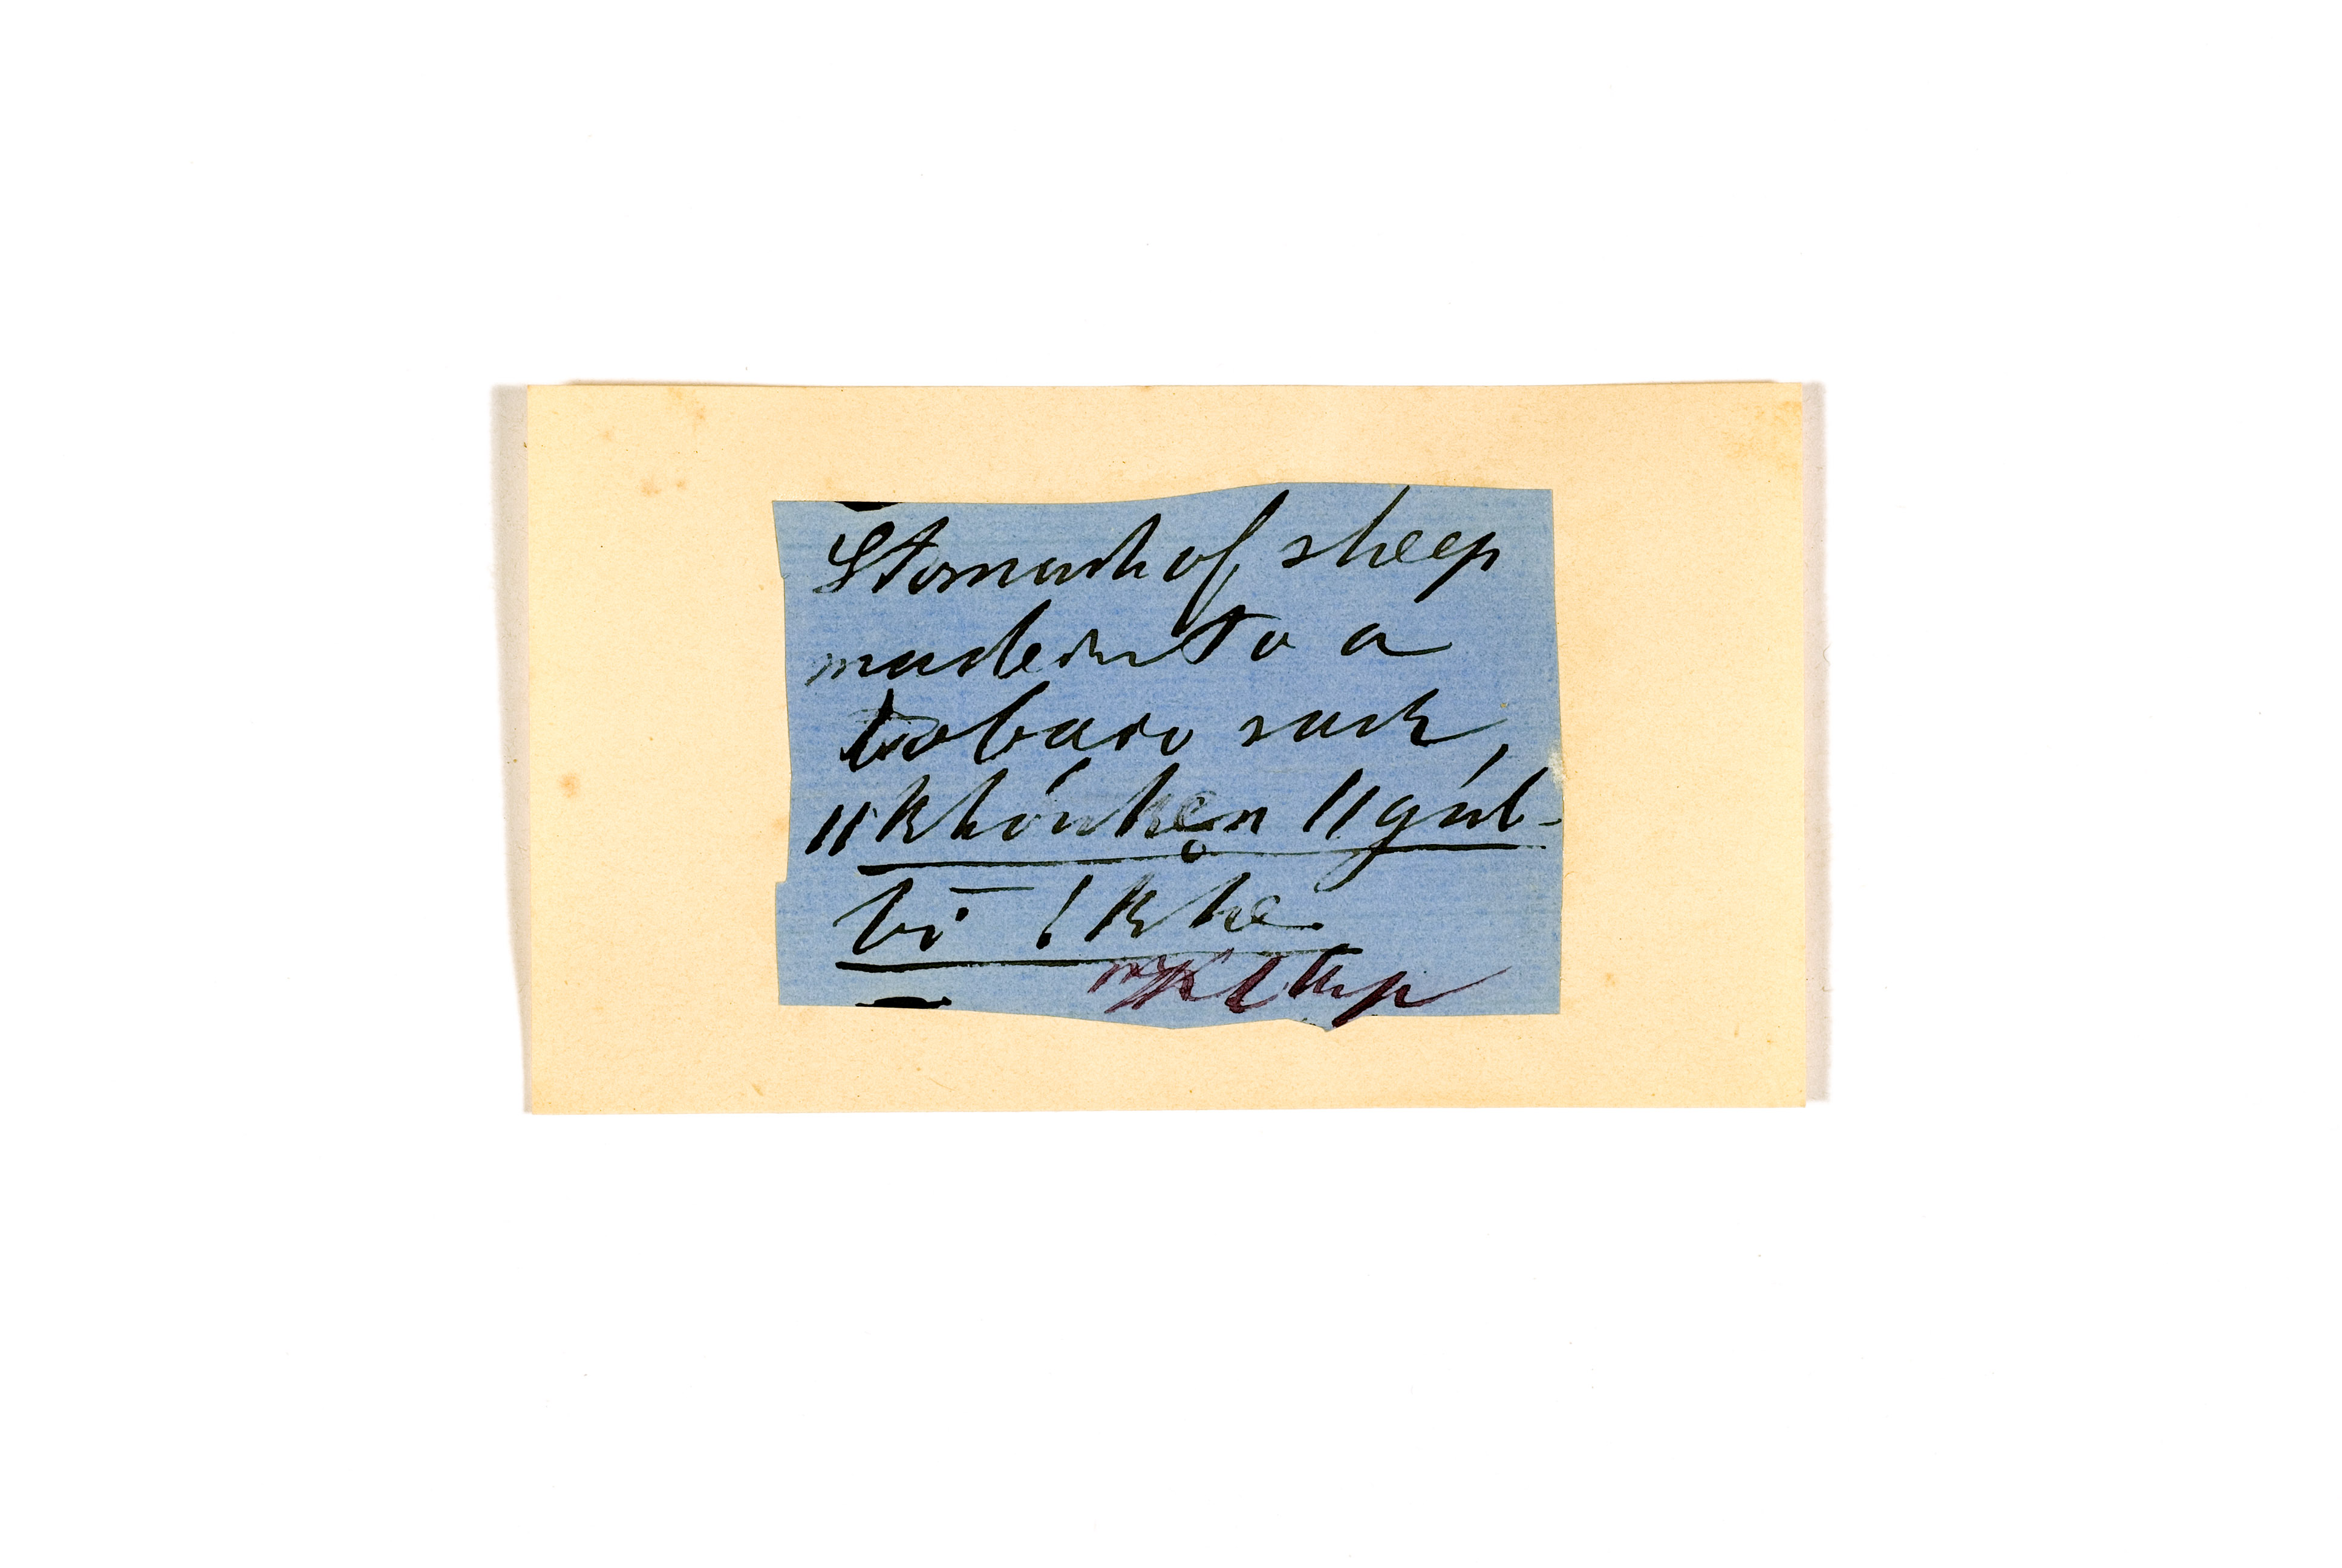 Stomach of sheep
made into a
tobacco sack,
‖khóuken ‖gúb-
bī !khe.